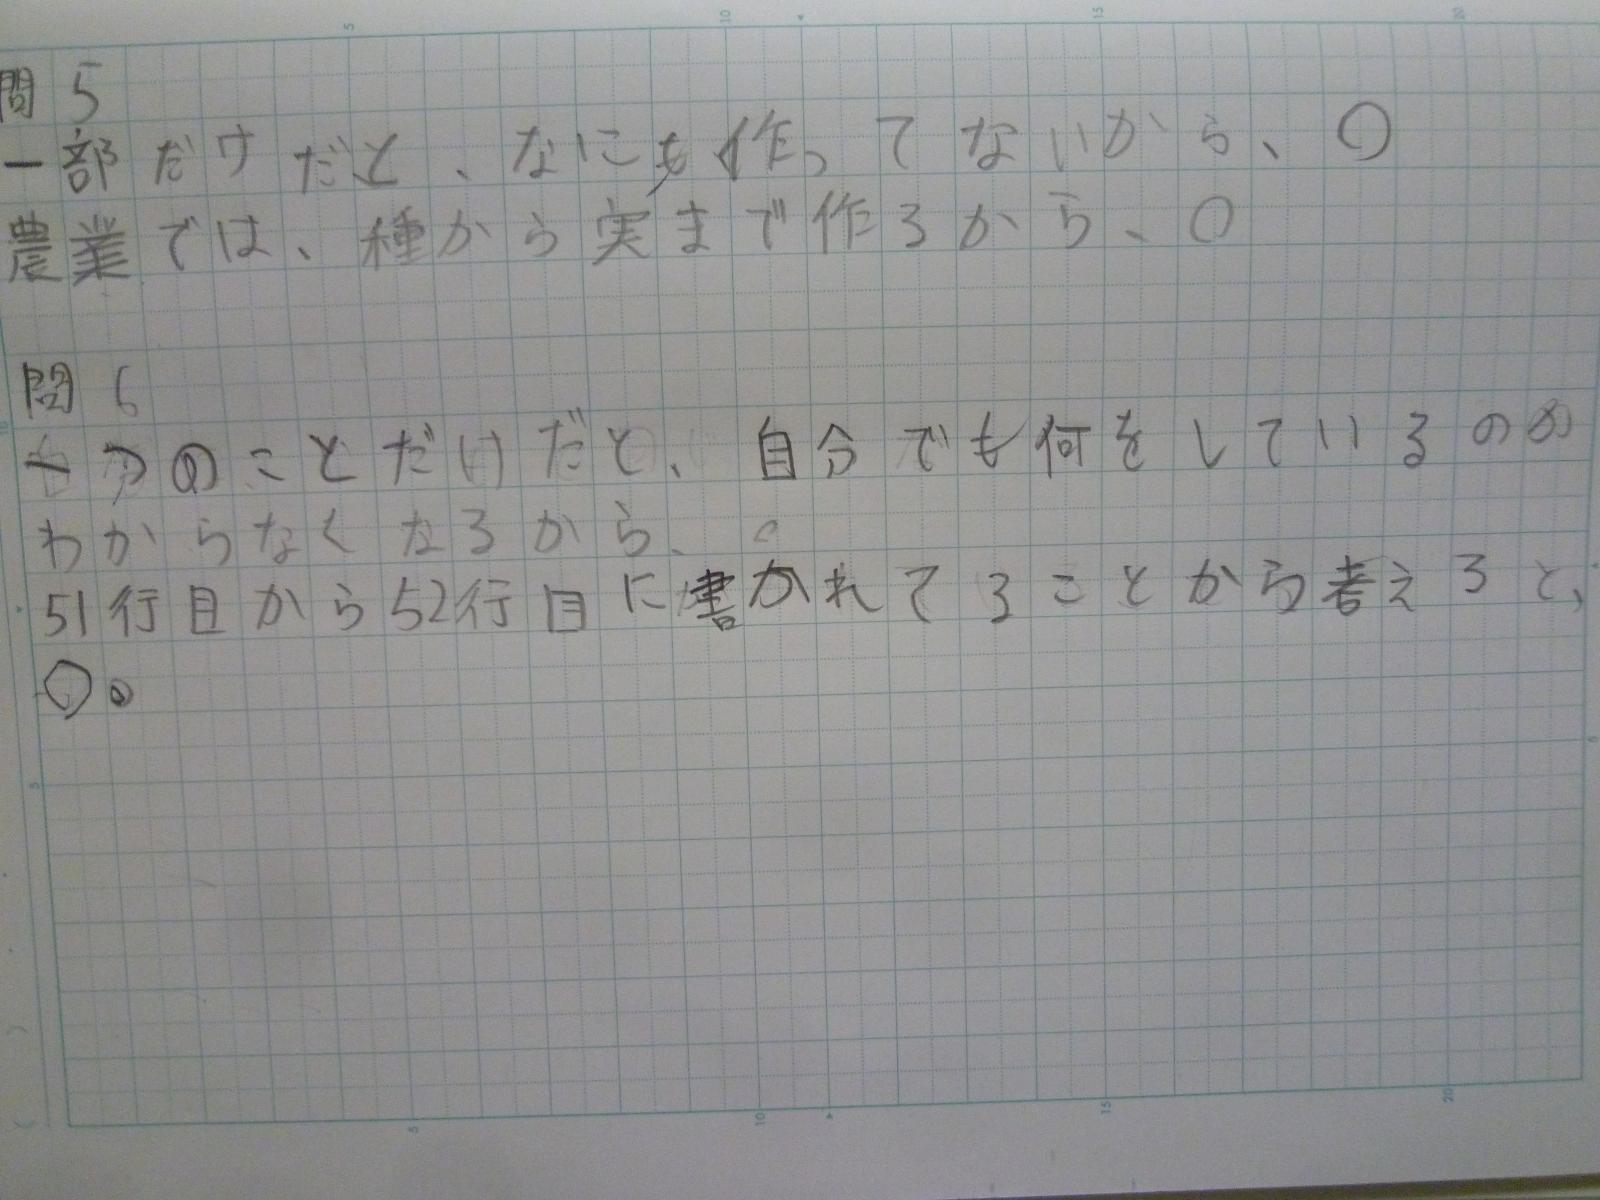 問5
一部だけだと、なにも作ってないから、〇
農業では、種から実まで作るから、〇
問6
一つのことだけだと、自分でも何をしているのか
わからなくなるから、。
51行目から52行目に書かれてることから考えると、
〇。